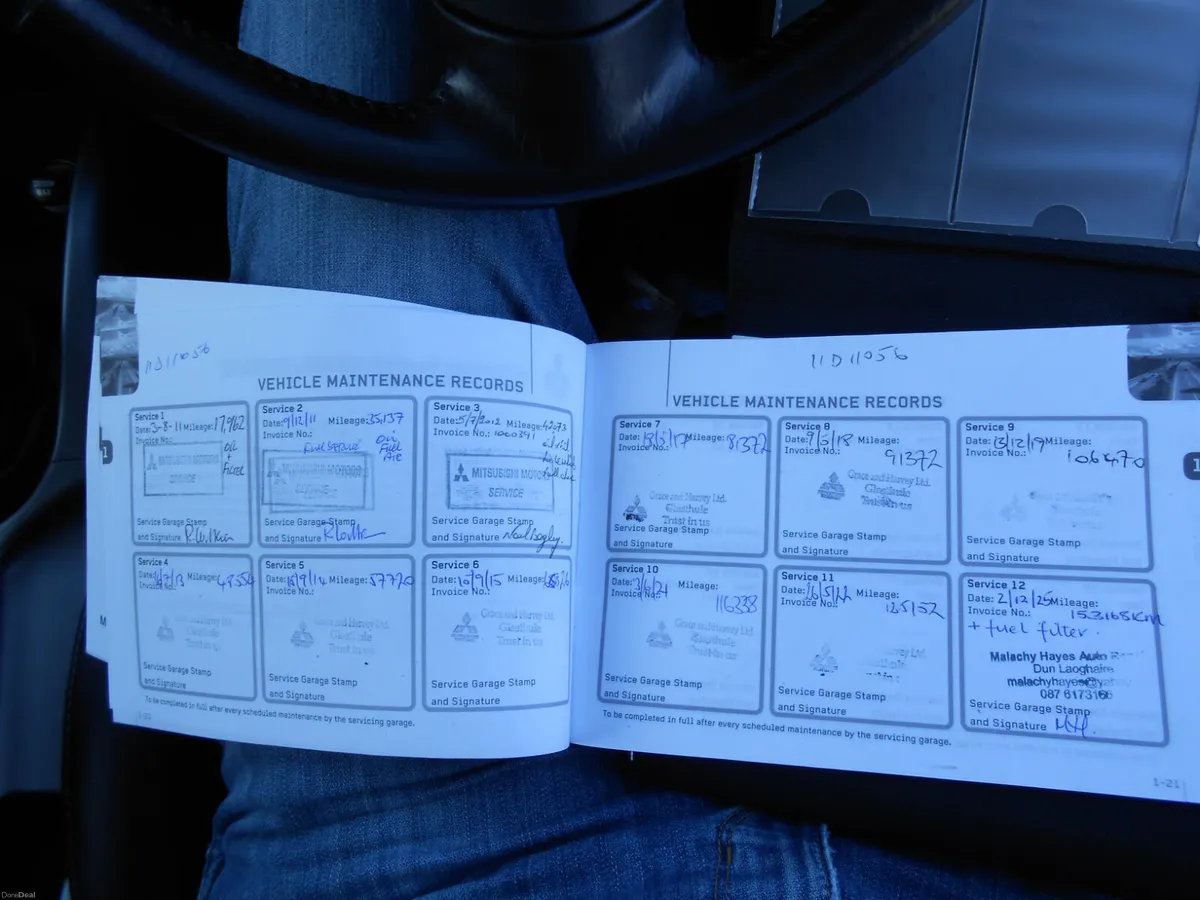 11D11056
VEHICLE MAINTENANCE RECORDS
Service 1
Date: 3-8-11 Mileage: 17,962
Invoice No.:
OIL
+
FILTER
MITSUBISHI MOTORS
SERVICE
Service Garage Stamp
and Signature
Service 2
Date: 9/12/11 Mileage: 35,137
Invoice No.:
OIL
FUEL
AIR
MITSUBISHI MOTORS
Service Garage Stamp
and Signature
Service 3
Date: 5/7/2012 Mileage:
Invoice No.:
MITSUBISHI MOTORS
SERVICE
Service Garage Stamp
and Signature
Service 4
Date: Mileage: 48554
Invoice No.:
Grace and Harvey Ltd.
Glasthule
Trust in us
Service Garage Stamp
and Signature
Service 5
Date: Mileage: 57770
Invoice No.:
Grace and Harvey Ltd.
Glasthule
Trust in us
Service Garage Stamp
and Signature
Service 6
Date: 10/9/15 Mileage:
Invoice No.:
Grace and Harvey Ltd.
Glasthule
Trust in us
Service Garage Stamp
and Signature
To be completed in full after every scheduled maintenance by the servicing garage.
11D11056
VEHICLE MAINTENANCE RECORDS
Service 7
Date: Mileage: 81372
Invoice No.:
Grace and Harvey Ltd.
Glasthule
Trust in us
Service Garage Stamp
and Signature
Service 8
Date: 9/5/18 Mileage:
Invoice No.: 91372
Grace and Harvey Ltd.
Glasthule
Trust in us
Service Garage Stamp
and Signature
Service 9
Date: 13/12/19 Mileage:
Invoice No.: 106470
Service Garage Stamp
and Signature
Service 10
Date: 3/6/21 Mileage:
Invoice No.: 116338
Grace and Harvey Ltd.
Glasthule
Trust in us
Service Garage Stamp
and Signature
Service 11
Date: 16/5/22 Mileage:
Invoice No.:
Service Garage Stamp
and Signature
Service 12
Date: 2/12/25 Mileage:
Invoice No.: 153168KM
+ fuel filter.
Malachy Hayes Auto
Dun Laoghaire
087 6173166
Service Garage Stamp
and Signature MH.
To be completed in full after every scheduled maintenance by the servicing garage.
1-21
DoneDeal